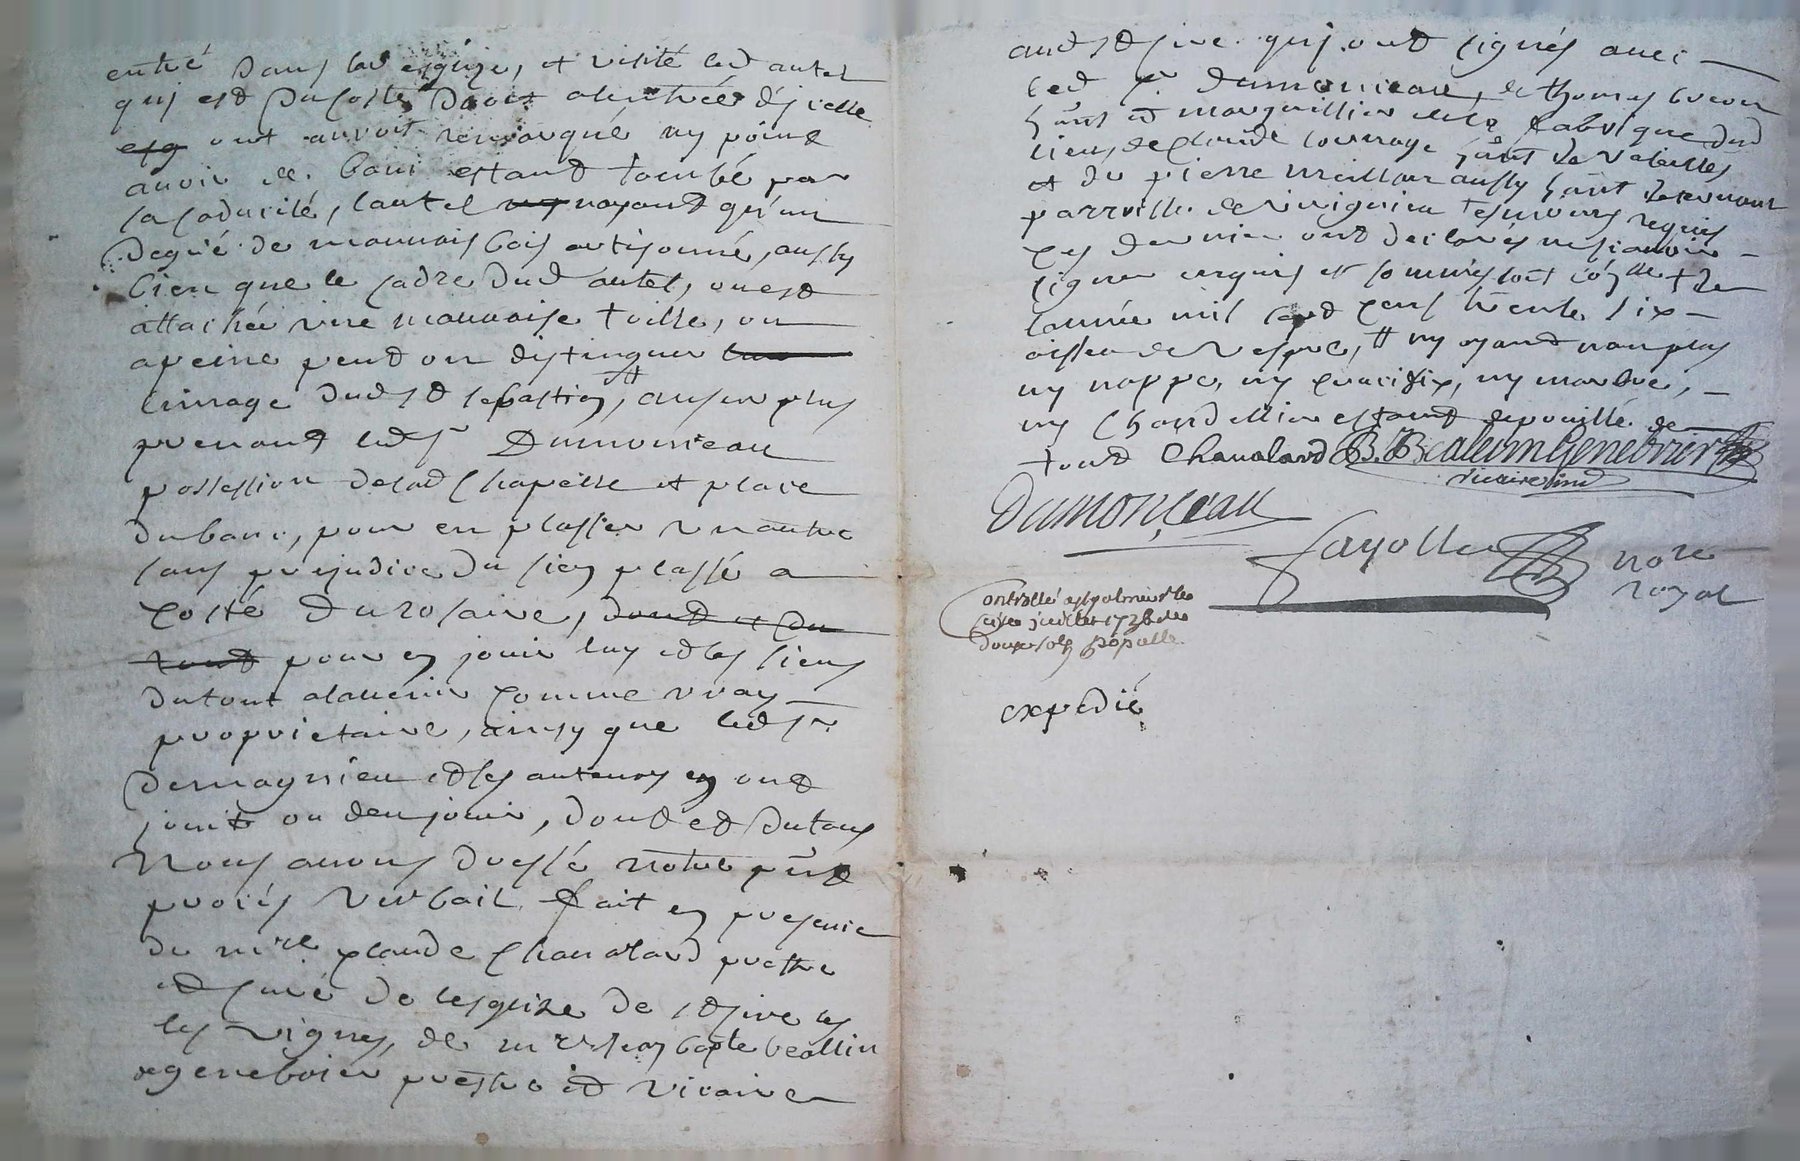 entré dans lad esglize, et visité led autel
qui est du costé droit alentrée d'jcelle
esg ont auroit remarqué ny point
avoir de banc estant tombé par
sa caducité, lautel ny nayant qu'un
degré de mauvais bois artisonné, aussy
bien que le cadre dud autel, ou est
attachée une mauvaise toille, ou
apeine peut on distinguer
limage dud st sebastien, #, ausur plus
prenant led sr Dumonceau
possession de lad chapelle et place
du banc, pour en plasser un autre
sans prejudice du sien plassé a
costé du rosaire, dont et du
tout pour en jouir luy et les siens
du tout alauenir comme vray
proprietaire, ainsy que led sr
demagnieu et ses auteurs en ont
jouit ou deu jouir, dont et du tout
Nous auons dressé notre pnt
procés verbail fait en presence
de mre claude Chaualard prestre
et curé de lesglize de st sire les
les vignes, de mre jean bapte beallin
degenebrier prestre et vicaire
aud st sire qui ont signés auec
led sr dumonceau, de thomas
hant et marguillier de la fabrique dud
lieu, de claude louurage hant de
et de pierre meilleur aussy hant
parroisse de tesmoins requis
ces derniers ont declarés ne scauoir
signer enquis et sommés
lannée mil sept cens trente six
# ny ayant non plus
ny nappe, ny crucifix, ny marbre,
ny chandellier estant depouillé de
tout Chaualard B. Bealem Genebrier
vicaire
Dumonceau
Fayolle nore
royal
Controllé a st galmier le
juillet 1736 de
douze sols
expedié